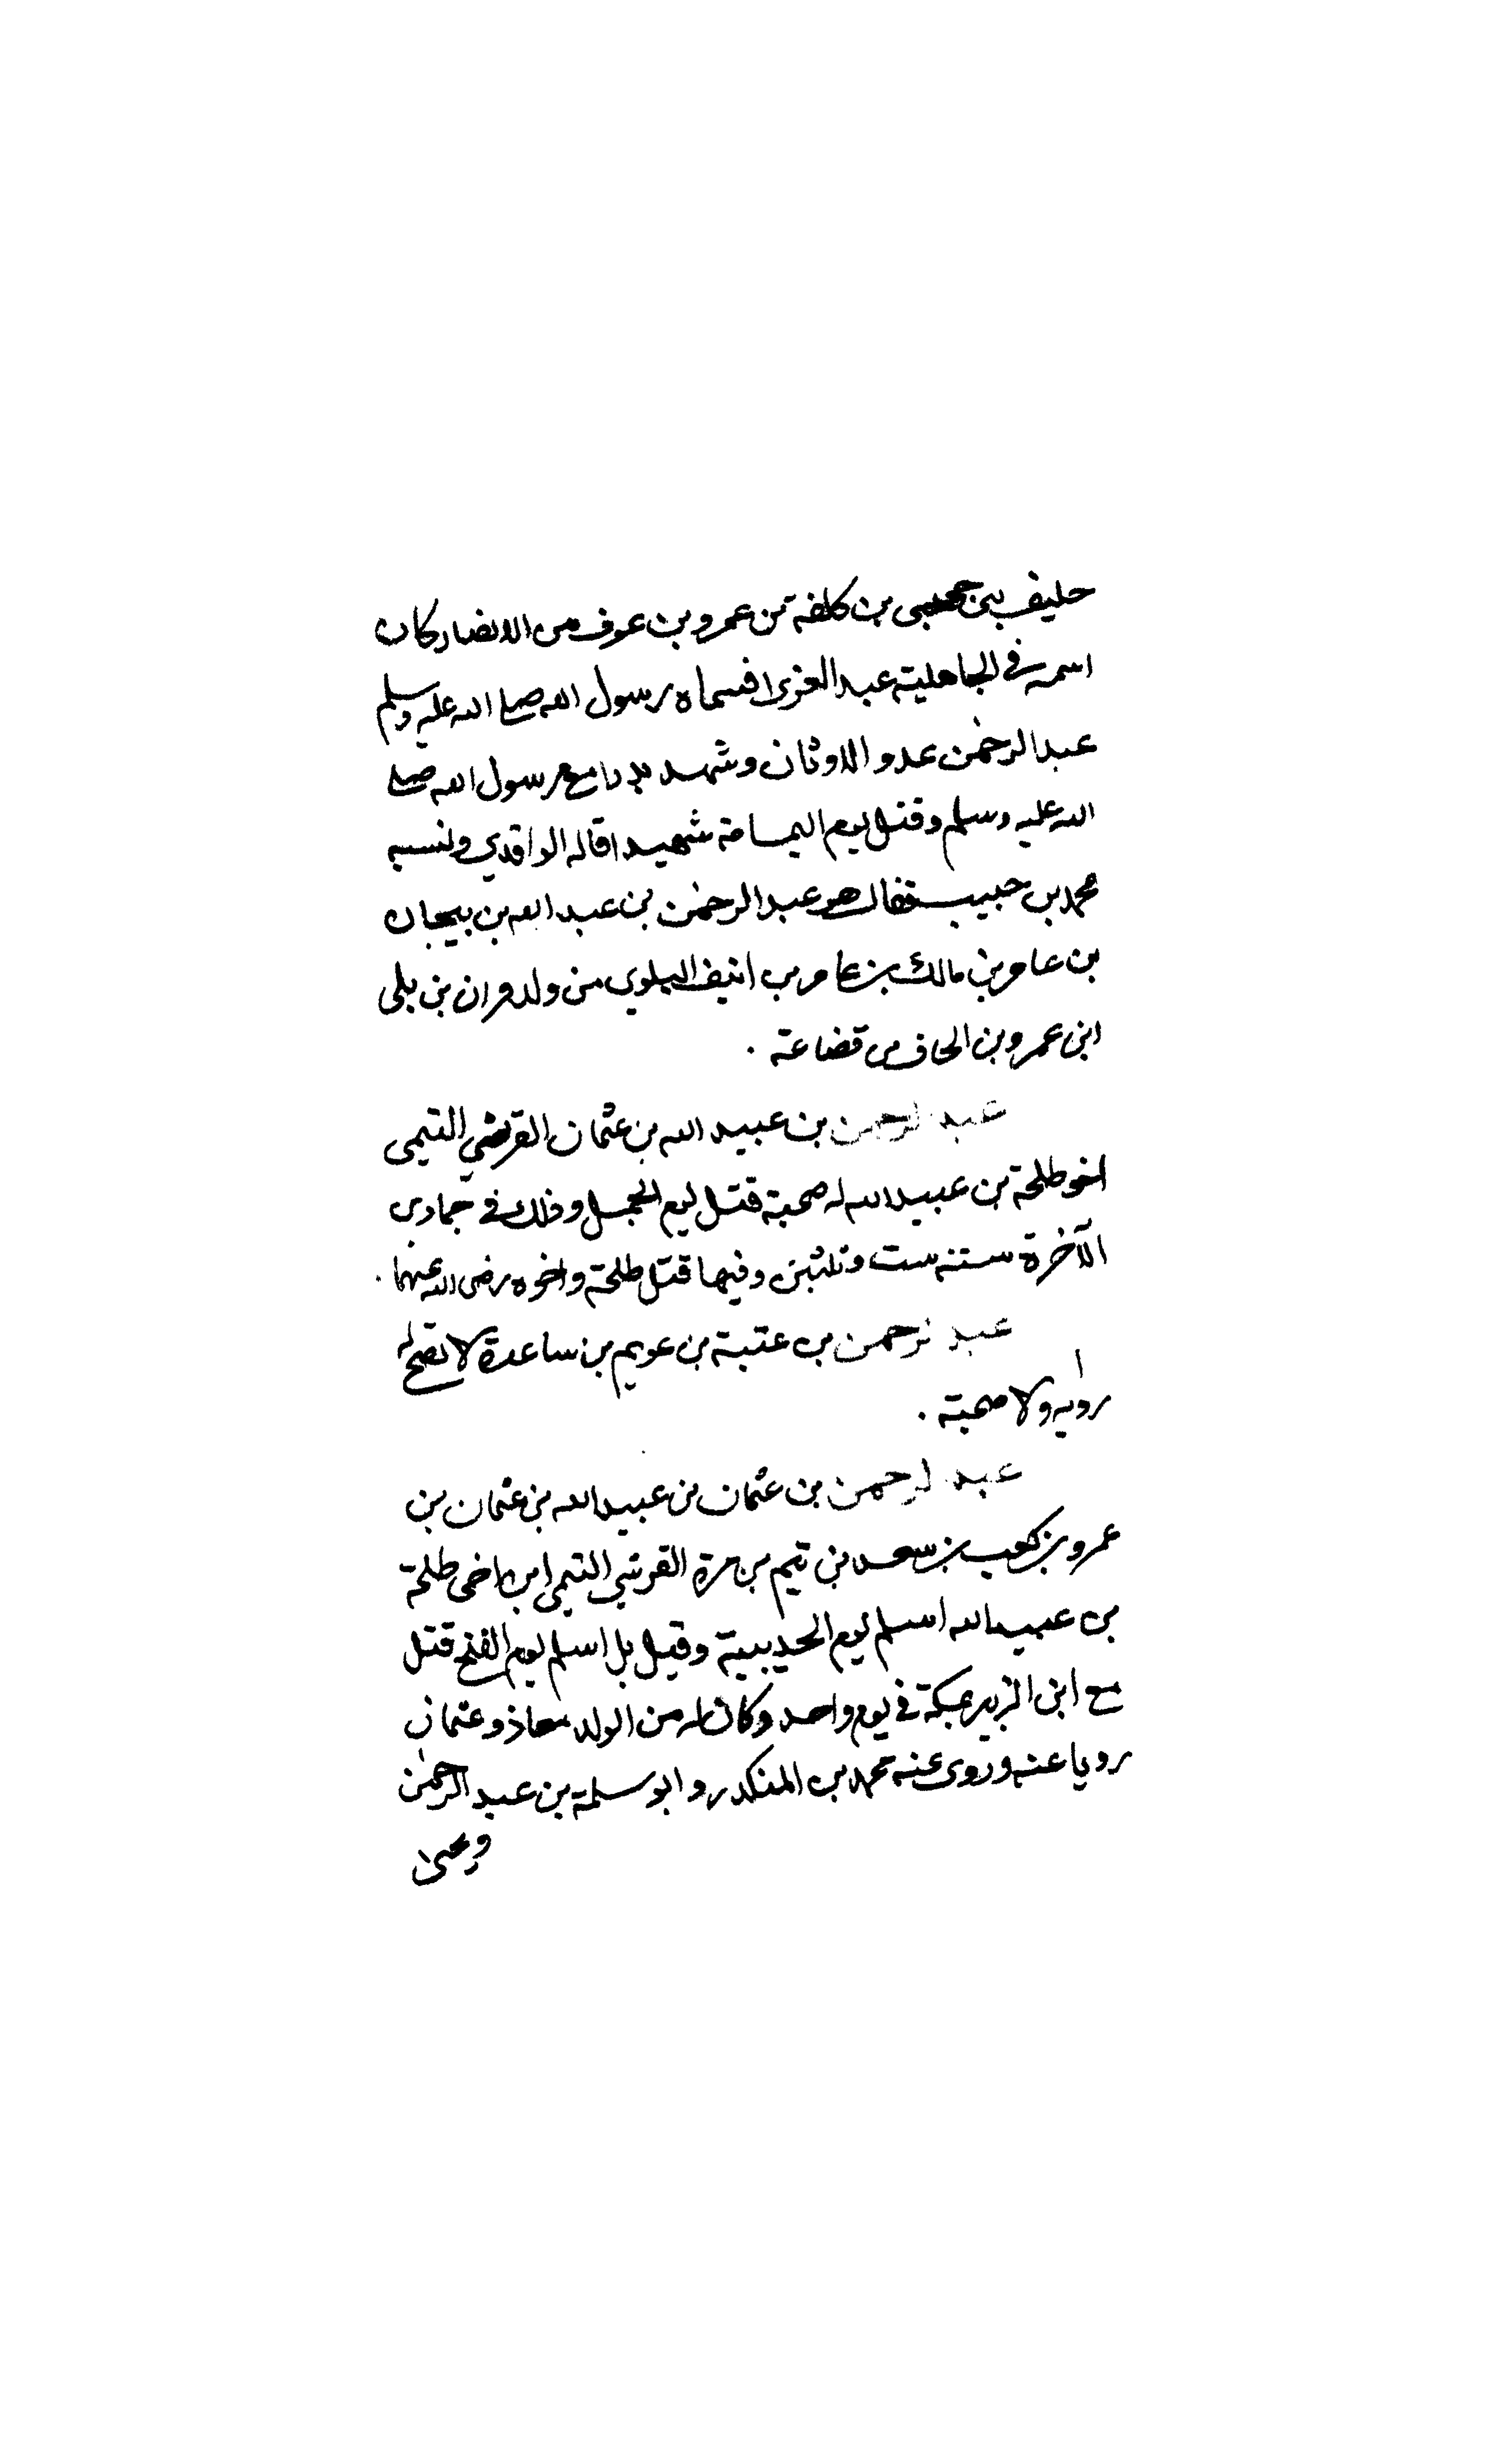 حليف بني جحجبى بن كلفة من عمرو بن عوف من الانصار كان
اسمه في الجاهلية عبد العزى فسماه رسول الله صلى الله عليه وسلم
عبد الرحمن عدو الاوثان وشهد بدرا مع رسول الله صلى
الله عليه وسلم وقتل يوم اليمامة شهيدا قاله الواقدي ونسبه
محمد بن حبيب فقال هو عبد الرحمن بن عبد الله بن بيجان
بن عامر بن مالك بن عامر بن انيف البلوي من ولد فران بن بلى
ابن عمرو بن الحاف من قضاعة .
عبد الرحمن بن عبيد الله بن عثمان القرشي التيمى
اخو طلحة بن عبيد الله له صحبة قتل يوم الجمل وذلك في جمادى
الآخرة سنة ست وثلثين وفيها قتل طلحة واخوه رضى الله عنهما .
عبد الرحمن بن عتبة بن عويم بن ساعدة لا تصح له
رواية ولا صحبة .
عبد الرحمن بن عثمان بن عبيد الله بن عثمان بن
عمرو بن كعب بن سعد بن تيم بن مرة القرشي التيمي ابن اخى طلحة
بن عبيد الله اسلم يوم الحديبية وقيل بل اسلم يوم الفتح قتل
مع ابن الزبير بمكة في يوم واحد وكان له من الولد معاذ وعثمان
رويا عنه وروى عنه محمد بن المنكدر وابو سلمة بن عبد الرحمن
ويحيى